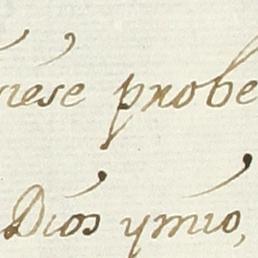 iese probe
Dios ymio,